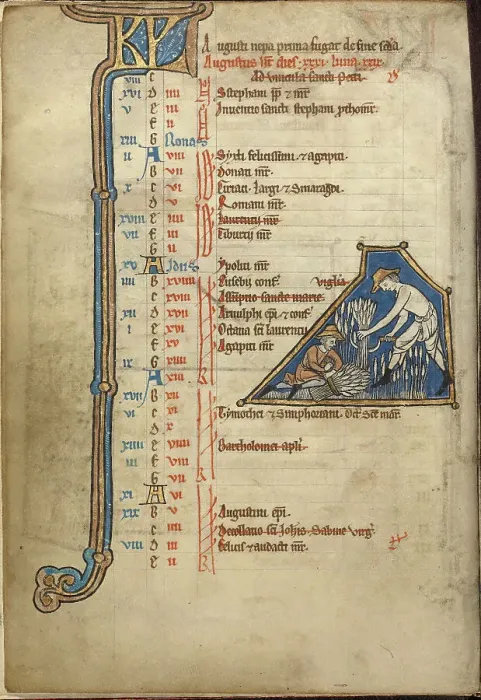 KL
Augusti nepa prima fugat de fine scda
Augustus ht dies xxxi luna xxix
viii c Ad vincula sancti Petri
xvi d iiii S stephani pp & mr
v e iii Inventio sancti stephani
f ii
xiii g Nonas
ii A viii Syxti felicissimi & agapiti
b vii Donati mr
x c vi Ciriaci Largi & Smaragdi
d v Romani mr
xviii e iiii Laurentii mr
vii f iii Tiburtii mr
g ii
xv A Idus Ypoliti mr
iiii b xviiii Eusebii conf vigilia
c xviii Assuptio sancte marie
xii d xvii Arnulphi epi & conf
i e xvi Octava sci laurentii
f xv Agapiti mr
ix g xiiii
A xiii
xvii b
vi c xi Tymothei & Simphoriani
d x
xiiii e viiii Bartholomei apli
iii f viii
g vii
xi A vi
xix b v Augustini epi
c iiii Decollatio sci Johis Sabine virg
viii d iii Felicis & audacti mr
e ii